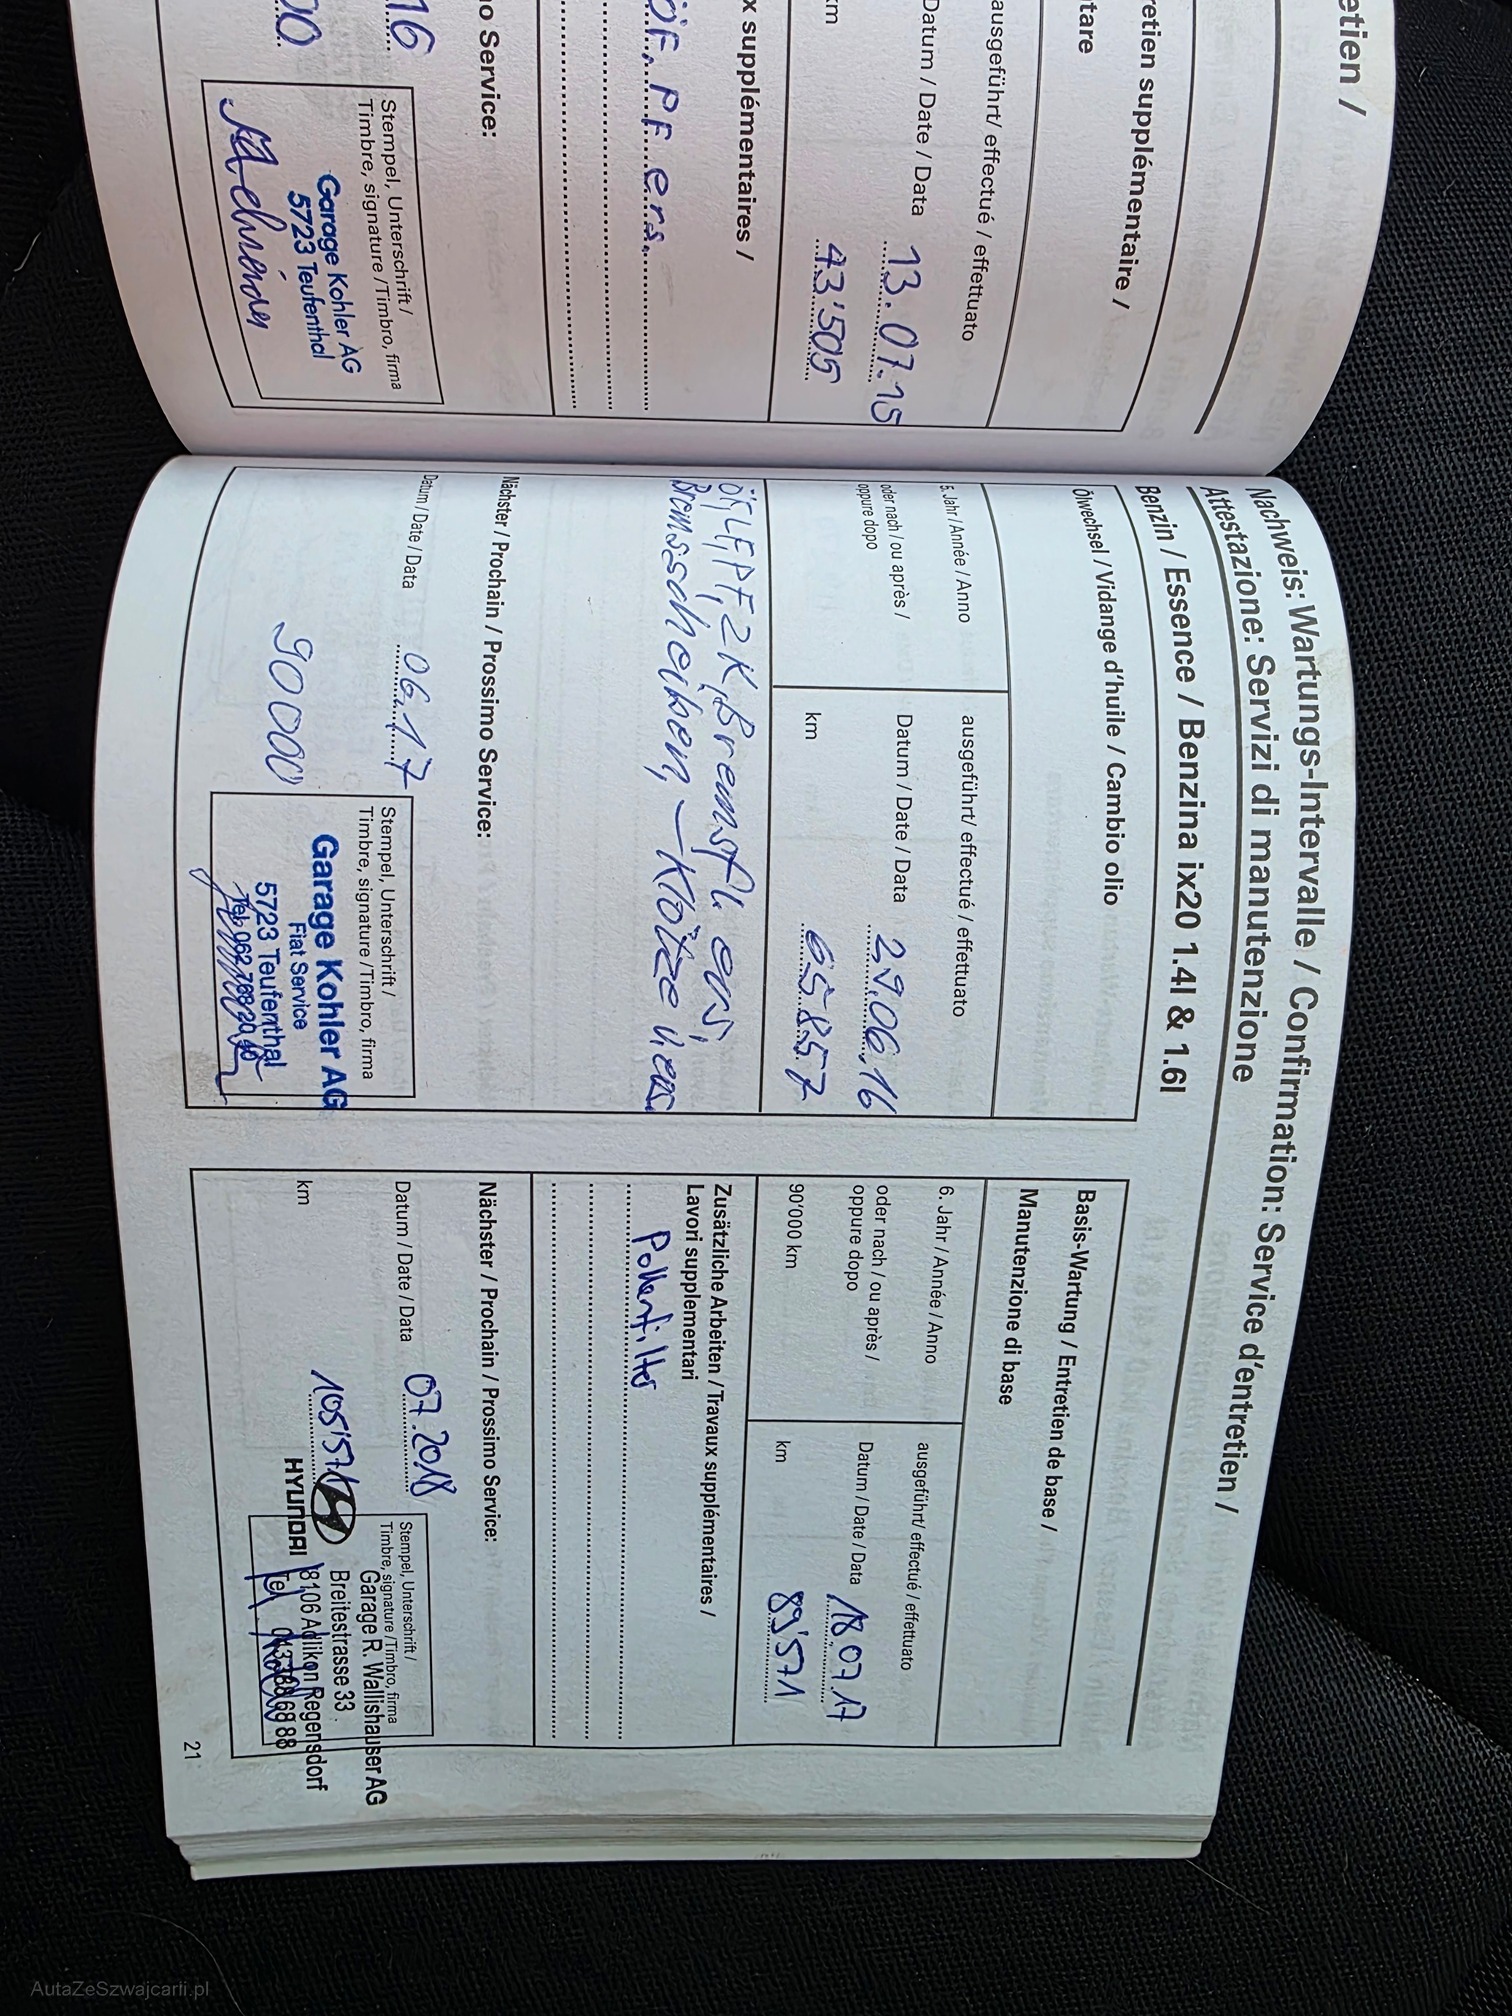 etien /
retien supplémentaire /
tare
ausgeführt/ effectué / effettuato
Datum / Date / Data 13.07.15
km 43'505
x supplémentaires /
ÖF. PF ers.
o Service:
16
00
Stempel, Unterschrift /
Timbre, signature /Timbro, firma
Garage Kohler AG
5723 Teufenthal
Nachweis: Wartungs-Intervalle / Confirmation: Service d'entretien /
Attestazione: Servizi di manutenzione
Benzin / Essence / Benzina ix20 1.4l & 1.6l
Ölwechsel / Vidange d'huile / Cambio olio
5. Jahr / Année / Anno
oder nach / ou après /
oppure dopo
ausgeführt/ effectué / effettuato
Datum / Date / Data 29.06.16
km 65857
ÖF, LF, PF, ZK, Bremsfl. ers,
Bremsscheiben, -Klötze v ers.
Nächster / Prochain / Prossimo Service:
Datum / Date / Data 06.17
90000
Stempel, Unterschrift /
Timbre, signature /Timbro, firma
Garage Kohler AG
Fiat Service
5723 Teufenthal
Basis-Wartung / Entretien de base /
Manutenzione di base
6. Jahr / Année / Anno
oder nach / ou après /
oppure dopo
90'000 km
ausgeführt/ effectué / effettuato
Datum / Date / Data 18.07.17
km 89'571
Zusätzliche Arbeiten / Travaux supplémentaires /
Lavori supplementari
Pollenfilter
Nächster / Prochain / Prossimo Service:
Datum / Date / Data 07.2018
km 105'571
Stempel, Unterschrift /
Timbre, signature /Timbro, firma
HYUNDAI
Garage R. Wallishauser AG
Breitestrasse 33
8106 Adlikon Regensdorf
Tel.
21
AutaZeSzwajcarii.pl